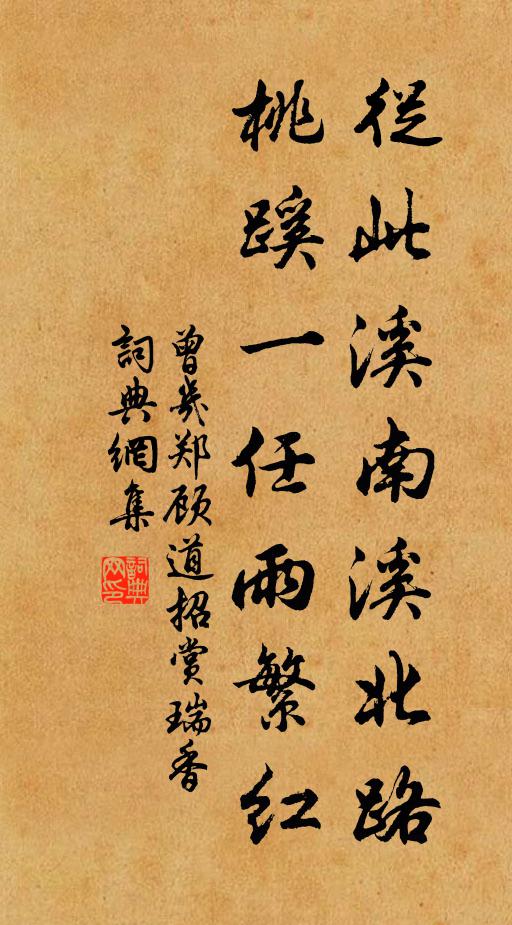 從此溪南溪北路
桃蹊一任雨繁红
曾幾郑顾道招赏瑞香
詞典網集
詞典网印